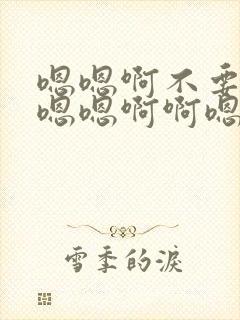 嗯嗯啊不要
嗯嗯啊啊嗯
雪季的淚